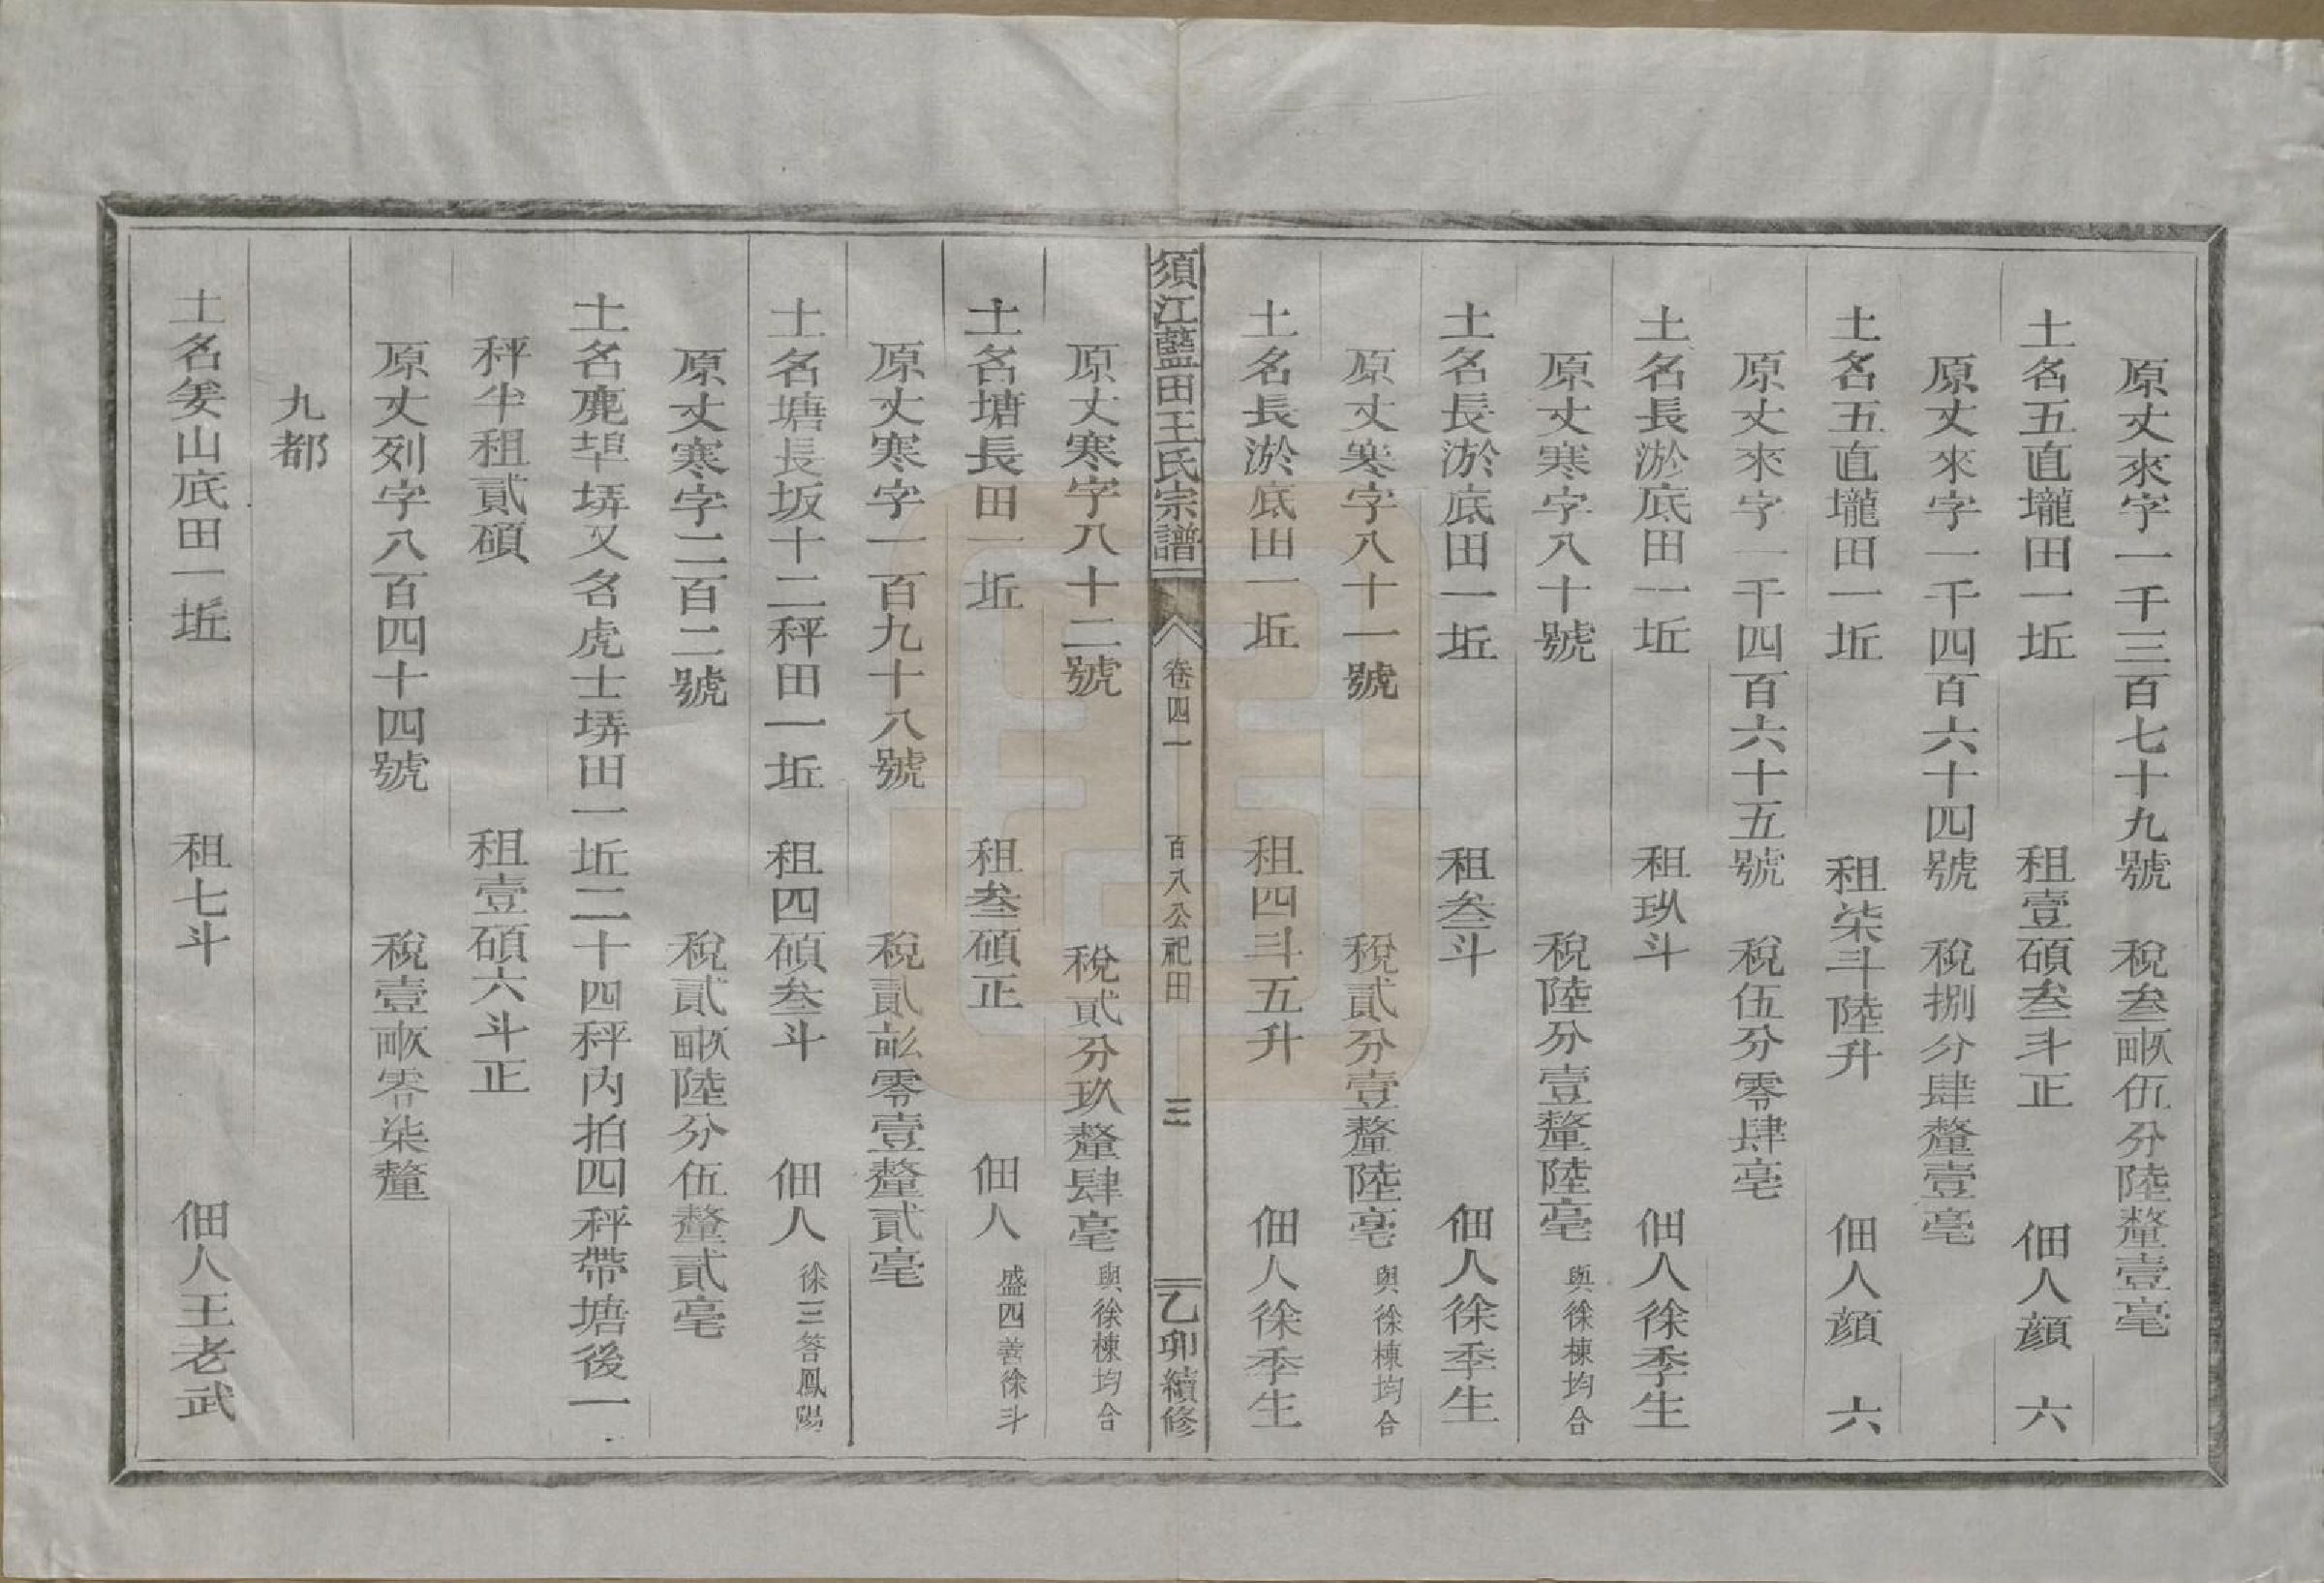 原丈來字一千三百七十九號　稅叁畝伍分陸釐壹毫
土名五直壠田一坵　租壹碩叁斗正　佃人顔六
原丈來字一千四百六十四號　稅捌分肆釐壹毫
土名五直壠田一坵　租柒斗陸升　佃人顔六
原丈來字一千四百六十五號　稅伍分零肆毫
土名長淤底田一坵　租玖斗　佃人徐季生
原丈寒字八十號　稅陸分壹釐陸毫　與徐棟均合
土名長淤底田一坵　租叁斗　佃人徐季生
原丈寒字八十一號　稅貳分壹釐陸毫　與徐棟均合
土名長淤底田一坵　租四斗五升　佃人徐季生
須江藍田王氏宗譜　卷四一　百八公祀田　三　乙卯續修
原丈寒字八十二號　稅貳分玖釐肆毫　與徐棟均合
土名塘長田一坵　租叁碩正　佃人　盛四善徐斗
原丈寒字一百九十八號　稅貳畝零壹釐貳毫
土名塘長坂十二秤田一坵　租四碩叁斗　佃人　徐三答鳳陽
原丈寒字二百二號　稅貳畝陸分伍釐貳毫
土名鹿埠塝又名虎士塝田一坵二十四秤內拍四秤帶塘後一
秤半租貳碩　租壹碩六斗正
原丈列字八百四十四號　稅壹畝零柒釐
九都
土名姜山底田一坵　租七斗　佃人王老武